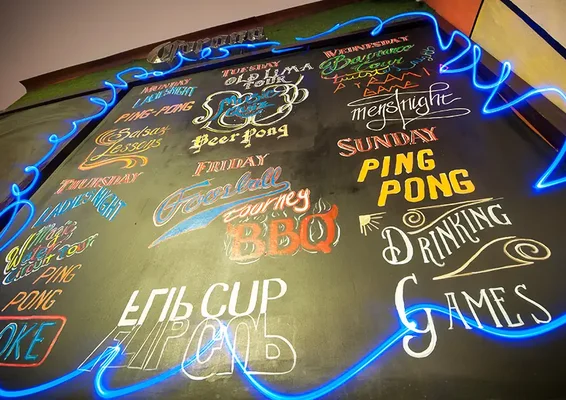 Corona
MONDAY
LADIES NIGHT
PING-PONG
Salsa
Lessons
TUESDAY
OLD LIMA
TOUR
Music
Beer Pong
WEDNESDAY
Barranco
Tour
men's night
THURSDAY
LADIES NIGHT
Magic
PING
PONG
OKE
FRIDAY
Foosball
tourney
BBQ
SUNDAY
PING
PONG
DRINKING
GAMES
FLIP CUP
FLIP CUP